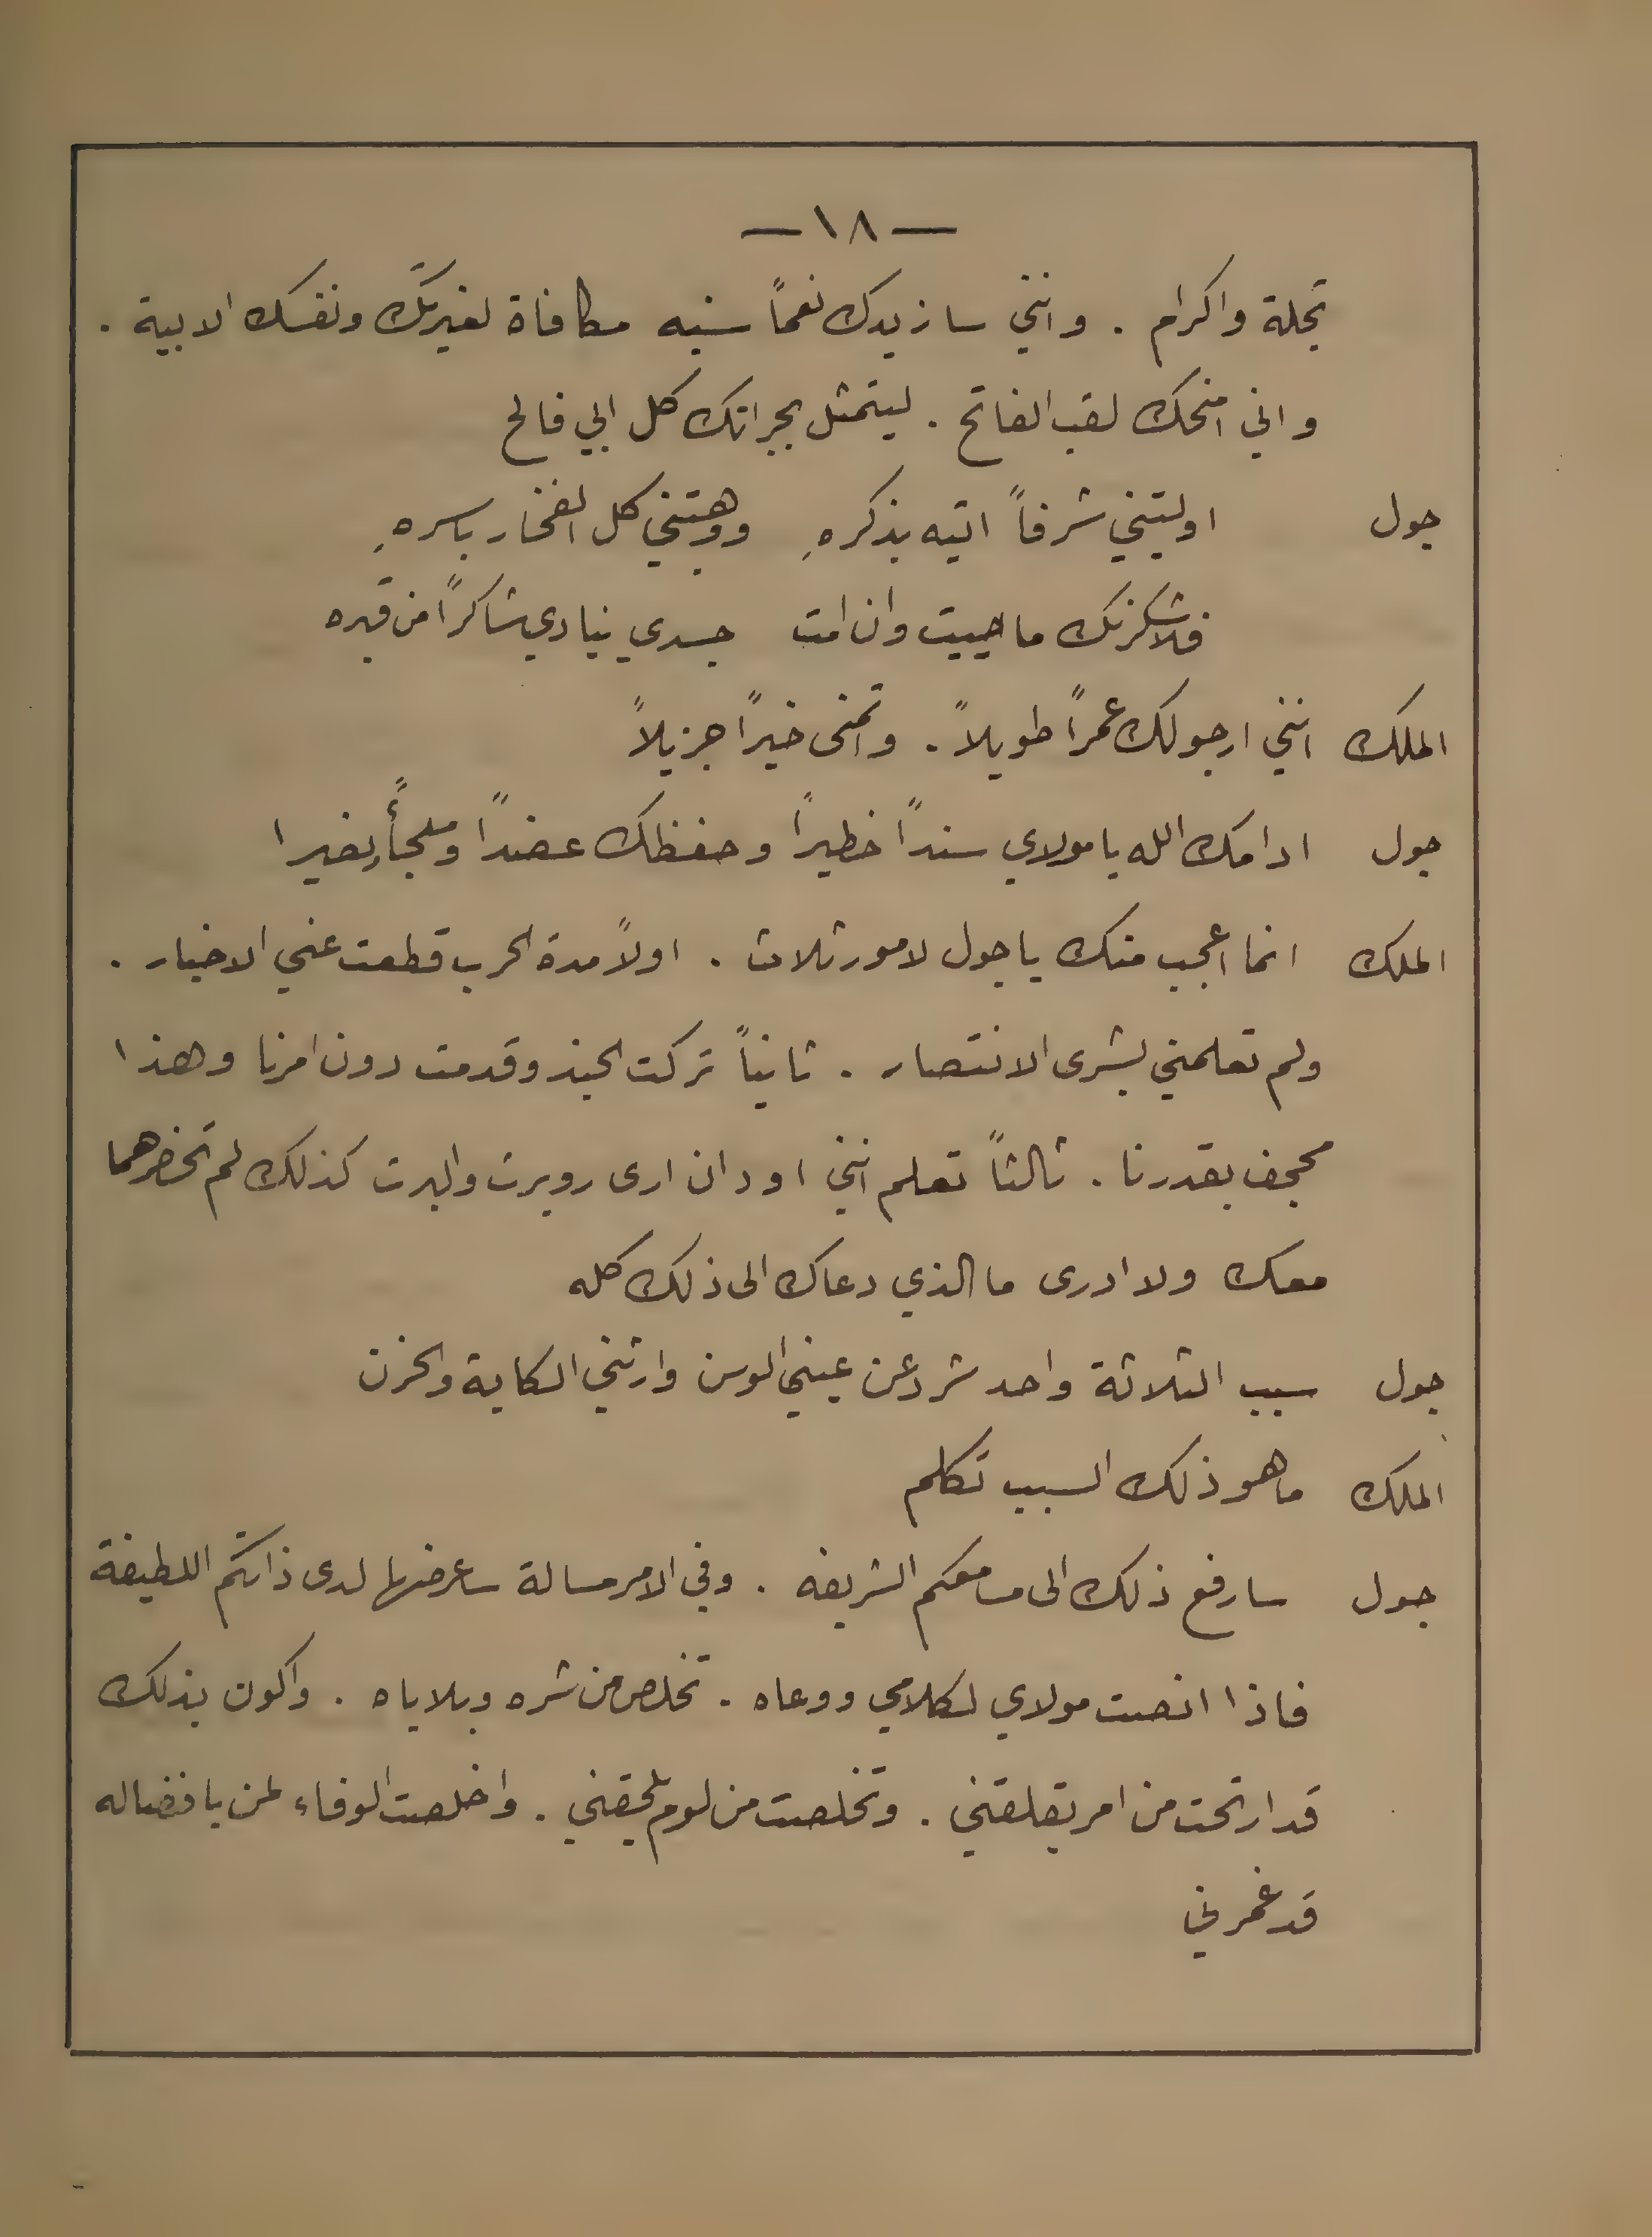 — ١٨ —
تجلة واكرام . وانني سازيدك نعماً سنيه مكافاة لغيرتك ونفسك الابية .
واني امنحك لقب الفاتح . ليتمثل بجراتك كل ابي فالح
جول اوليتني شرفاً اتيه بذكرهِ ووهبتني كل الفخار باسرهِ
فلاشكرنك ما حييت وان امت جسدي ينادي شاكراً من قبره
الملك انني ارجو لك عمراً طويلاً . واتمنى خيراً جزيلاً
جول ادامك الله يا مولاي سنداً خطيراً وحفظك عضداً وملجأً نصيرا
الملك انما اعجب منك يا جول لامور ثلاث . اولاً مدة الحرب قطعت عني الاخبار .
ولم تعلمني بشرى الانتصار . ثانياً تركت الجند وقدمت دون امرنا وهذا
مجحف بقدرنا . ثالثاً تعلم انني اود ان ارى روبرت والبرت كذلك لم تحضرهما
معك ولا ادرى ما الذي دعاك الى ذلك كله
جول سبب الثلاثة واحد شرد عن عيني الوسن وارثني الكابة والحزن
الملك ما هو ذلك السبب تكلم
جول سارفع ذلك الى مسامعكم الشريفه . وفي الامر مسالة ساعرضها لدى ذاتكم اللطيفة
فاذا انصت مولاي لكلامي ووعاه . تخلص من شره وبلاياه . واكون بذلك
قد ارتحت من امر يقلقني . وتخلصت من لوم يلحقني . واخلصت الوفاء لمن بافضاله
قد غمرني